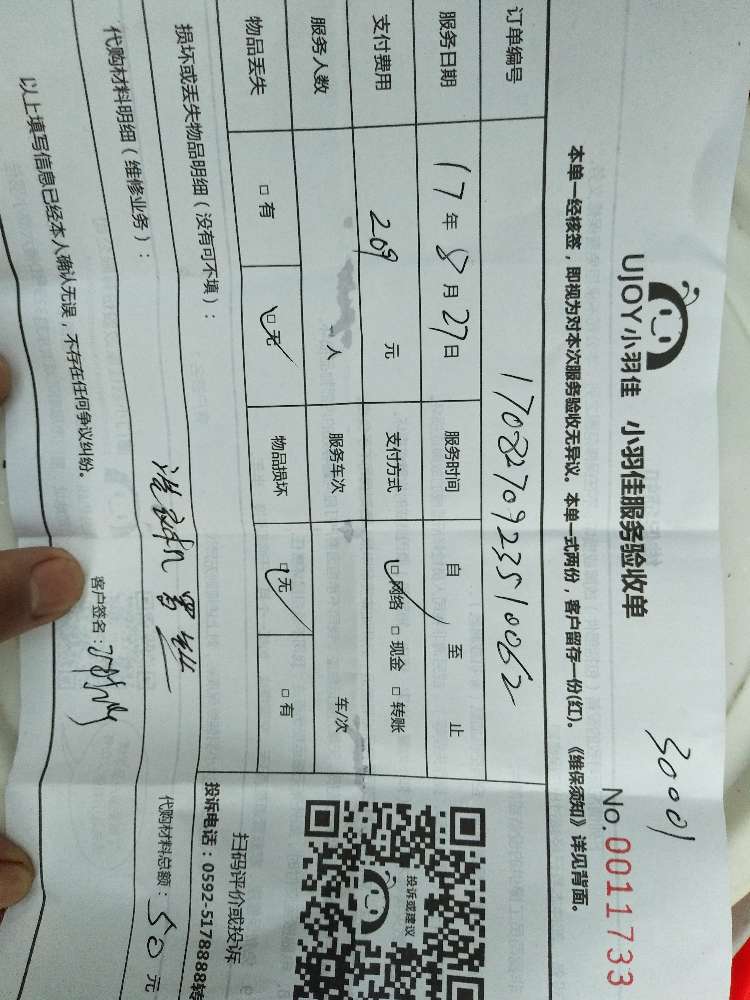 30001
UJOY小羽佳 小羽佳服务验收单
No.0011733
本单一经核签，即视为对本次服务验收无异议。本单一式两份，客户留存一份(红)。《维保须知》详见背面。
订单编号 170827092351 0062
服务日期 17年8月27日 服务时间 自 至 止
支付费用 209 元 支付方式 □网络 □现金 □转账
服务人数 人 服务车次 车/次
物品丢失 □有 □无 物品损坏 □无 □有
损坏或丢失物品明细（没有可不填）：
代购材料明细（维修业务）： 洗衣机 代购材料总额：50元
以上填写信息已经本人确认无误，不存在任何争议纠纷。
客户签名：
投诉或建议
扫码评价或投诉
投诉电话：0592-5178888转